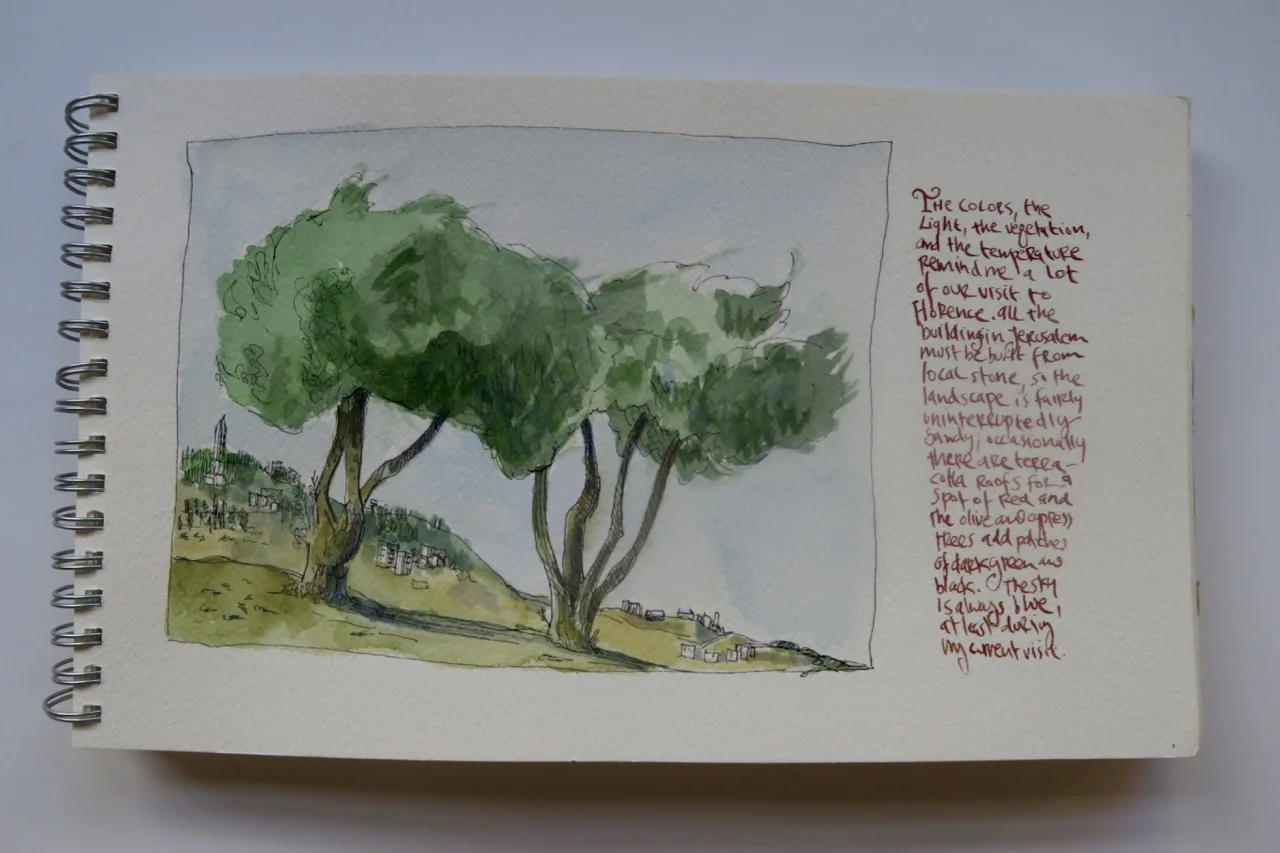 THE COLORS, the
Light, the vegetation,
and the temperature
Remind me a lot
of our visit to
Florence. all the
building in Jerusalem
must be built from
local stone, so the
landscape is fairly
uninterruptedly
Sandy; occasionally
there are terra-
cotta Roofs for a
Spot of Red and
the olive and cypress
trees add patches
of dark green and
black. The sky
is always blue,
at least during
my current visit.